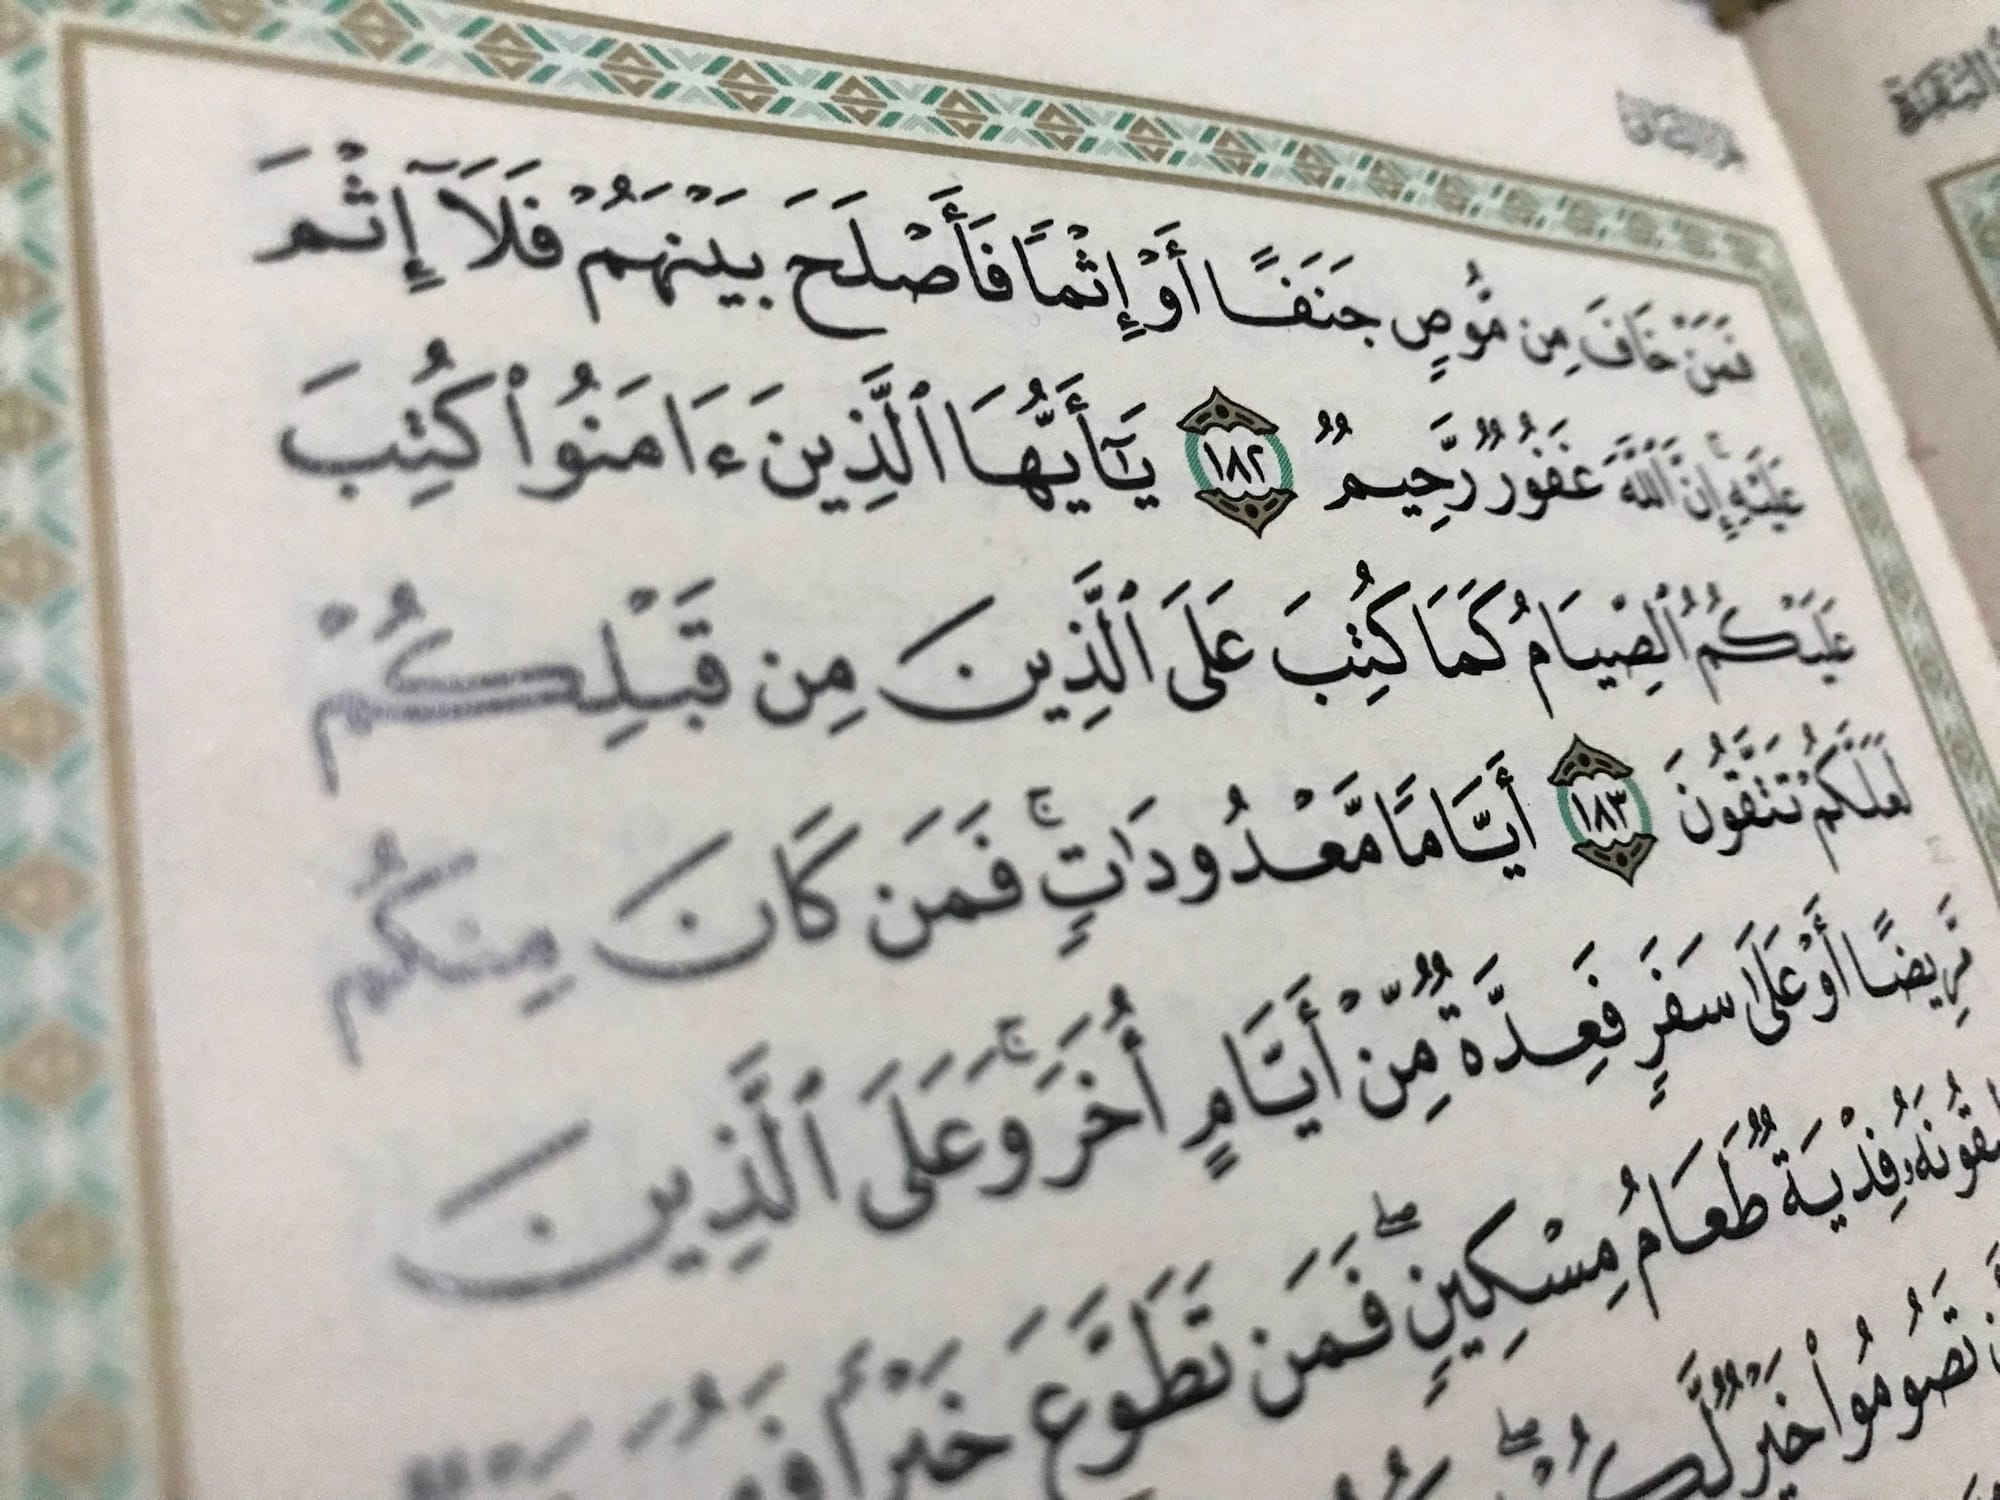 الجزء الثاني
فَمَنْ خَافَ مِن مُّوصٍ جَنَفًا أَوْ إِثْمًا فَأَصْلَحَ بَيْنَهُمْ فَلَآ إِثْمَ
عَلَيْهِ ۚ إِنَّ ٱللَّهَ غَفُورٌ رَّحِيمٌ ١٨٢ يَـٰٓأَيُّهَا ٱلَّذِينَ ءَامَنُوا۟ كُتِبَ
عَلَيْكُمُ ٱلصِّيَامُ كَمَا كُتِبَ عَلَى ٱلَّذِينَ مِن قَبْلِكُمْ
لَعَلَّكُمْ تَتَّقُونَ ١٨٣ أَيَّامًا مَّعْدُودَٰتٍ ۚ فَمَن كَانَ مِنكُم
مَّرِيضًا أَوْ عَلَىٰ سَفَرٍ فَعِدَّةٌ مِّنْ أَيَّامٍ أُخَرَ ۚ وَعَلَى ٱلَّذِينَ
فِدْيَةٌ طَعَامُ مِسْكِينٍ ۖ فَمَن تَطَوَّعَ خَيْرًا
تَصُومُوا۟ خَيْرٌ لَّكُمْ ۖ